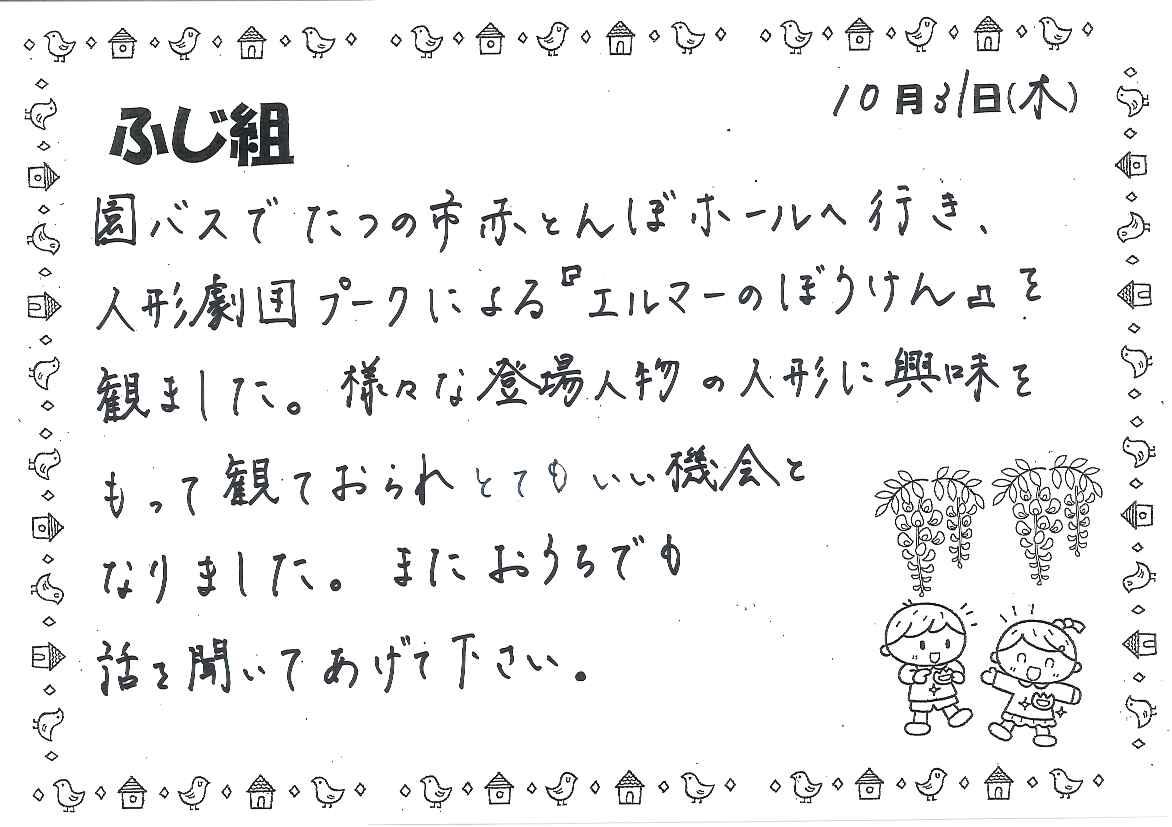 10月31日(木)
ふじ組
園バスでたつの市赤とんぼホールへ行き、
人形劇団プークによる『エルマーのぼうけん』を
観ました。様々な登場人物の人形に興味を
もって観ておられとてもいい機会と
なりました。またおうちでも
話を聞いてあげて下さい。